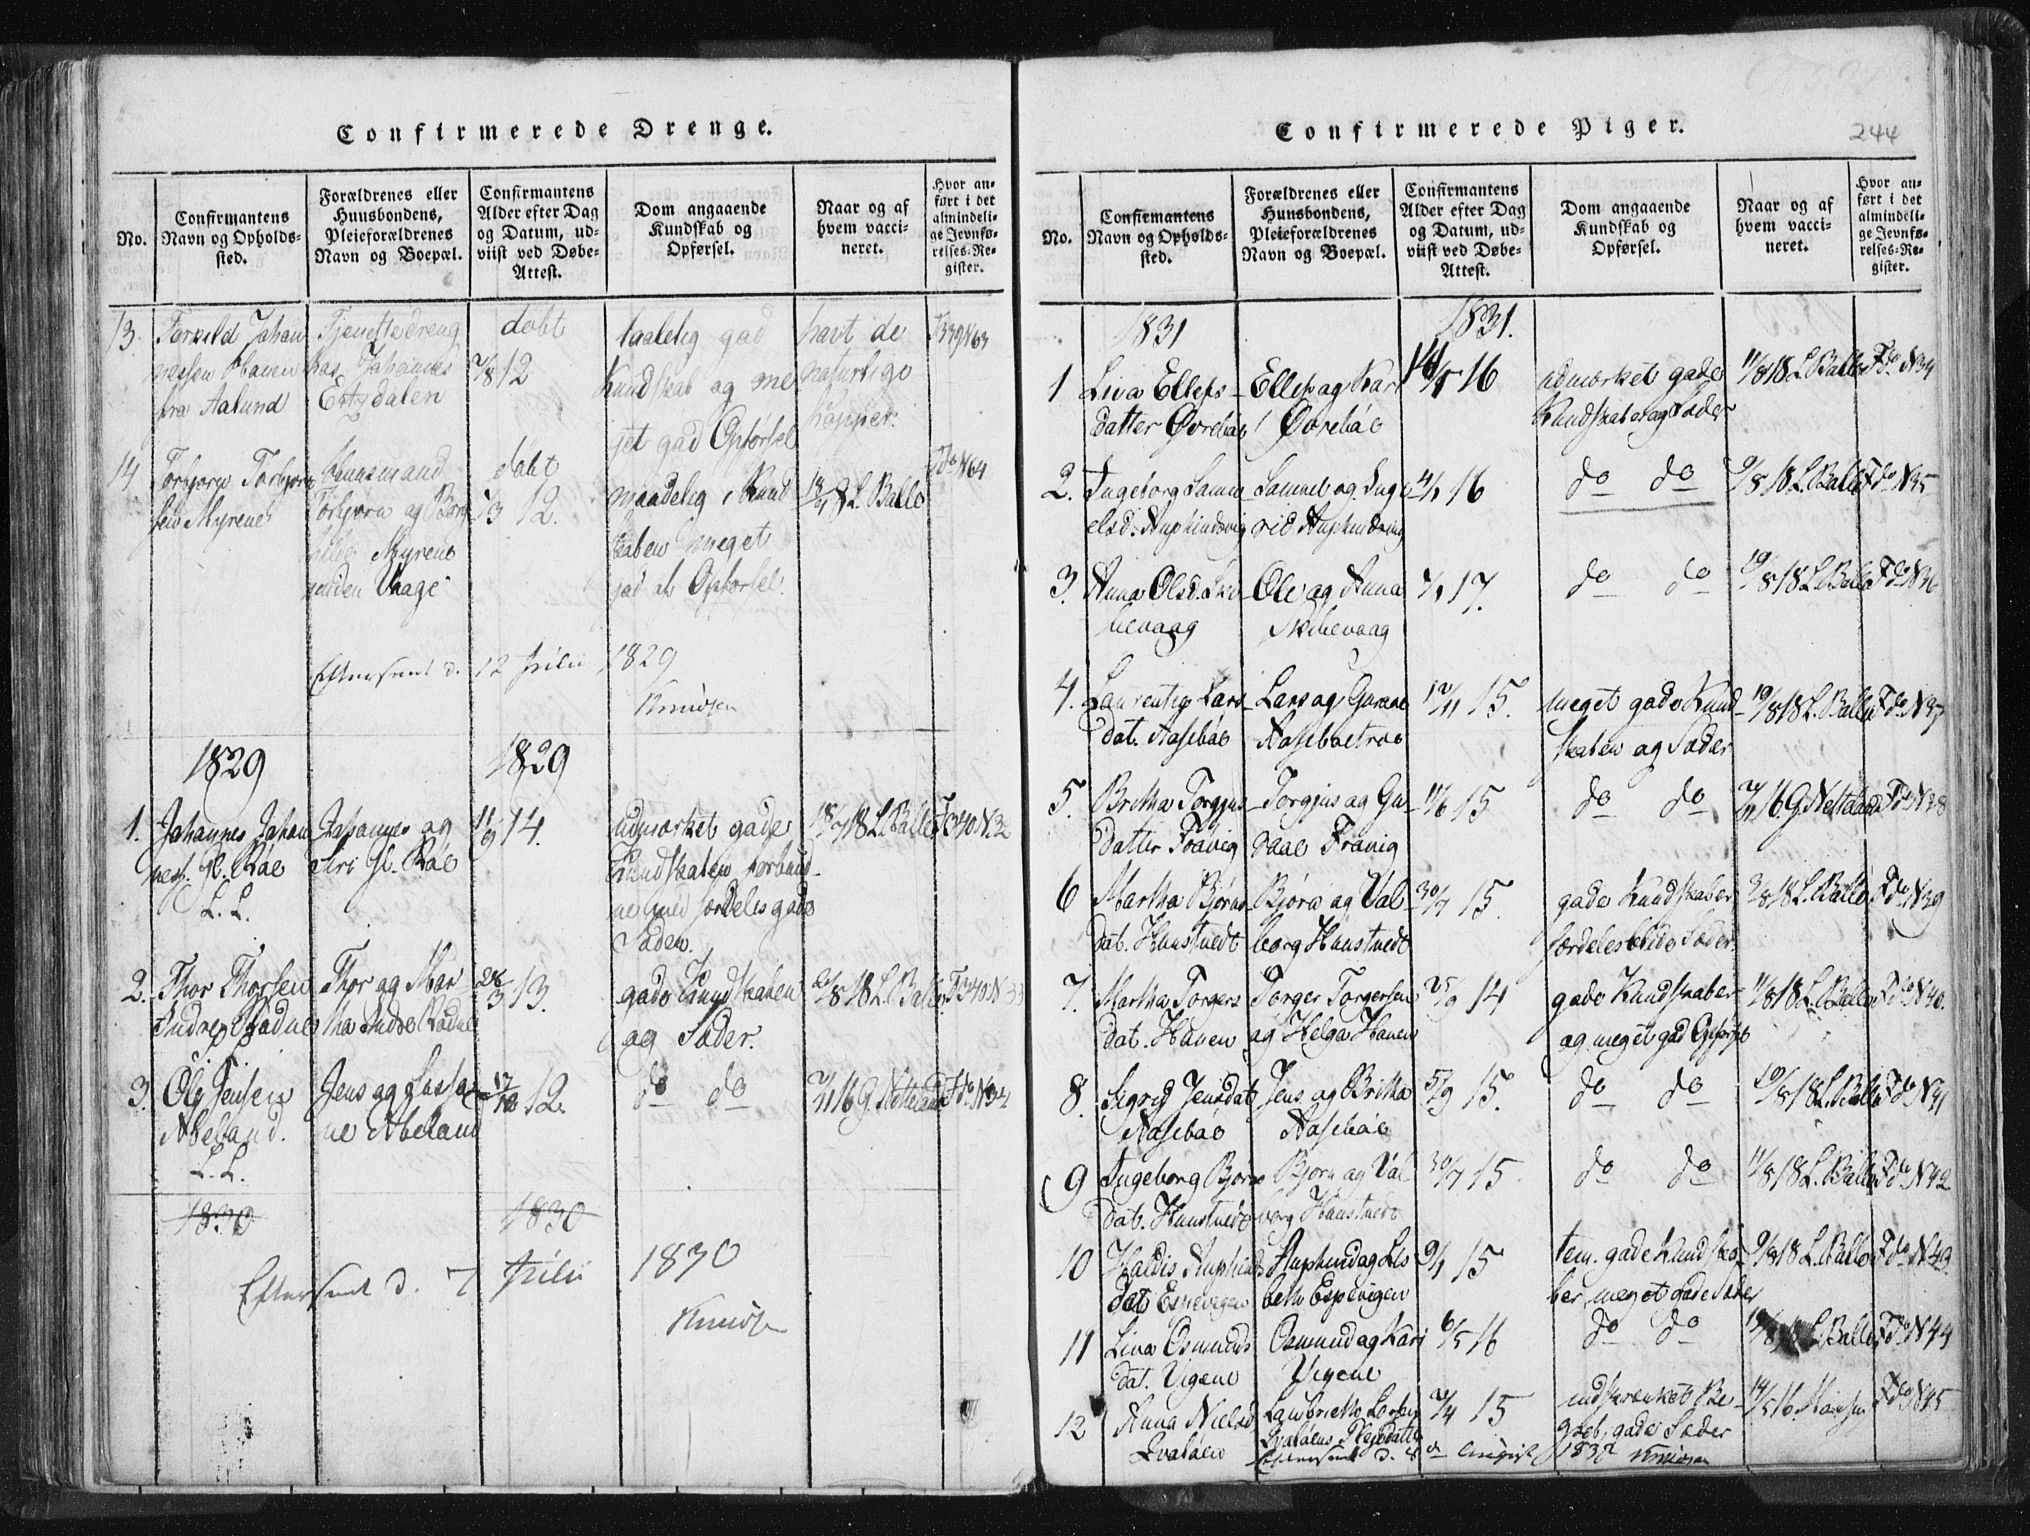 Confirmerede Drenge.
No.
Confirmantens
Navn og Opholds-
sted.
Forældrenes eller
Huusbondens,
Pleieforældrenes
Navn og Boepæl.
Confirmantens
Alder efter Dag
og Datum, ud-
viist ved Døbe-
Attest.
Dom angaaende
Kundskab og
Opførsel.
Naar og af
hvem vacci-
neret.
Hvor an-
ført i det
almindeli-
ge Jevnfø-
relses-Re-
gister.
13. Torkild Johan
nessen
fra Aalund
Tjenestedreng
hos Johannes
døbt
2/8 12
taalelig god
Kundskab og me
get god Opførsel
havt de
naturlige
Kopper.
F339 N63
14 Torbjørn Torbjørn
sen Myrene
Huusmand
Torbjørn og
Myrene
døbt
1/3 12.
maadelig i Kund
skaben meget
god at Opførsel.
L. Balle
F do N64
Efterseet d. 12 Julii 1829
Knudsen
1829
1829
1. Johannes Johan
ness. Gl. Røe
L. L.
Johannes og
Siri Gl. Røe
11/9 14.
udmærket gode
Kundskaben forbund-
ne med særdeles gode
Sæder.
18/7 18 L. Balle
F340 N32
2. Thor Thorsen
Indre Rødne
Thor og Mar
tha Indre Rødne
26/3 13.
gode Kundskaben
og Sæder.
2/8 18 L. Balle
F340 N33
3. Ole Jensen
Abeland.
L. L.
Jens og Sussa
ne Abeland
17/10 12.
do do
2/11 16 G. Netteland
F do N34
1830
1830
Efterseet d. 7 Julii 1830
Knudsen
Confirmerede Piger.
244
No.
Confirmantens
Navn og Opholds-
sted.
Forældrenes eller
Huusbondens,
Pleieforældrenes
Navn og Boepæl.
Confirmantens
Alder efter Dag
og Datum, ud-
viist ved Døbe-
Attest.
Dom angaaende
Kundskab og
Opførsel.
Naar og af
hvem vacci-
neret.
Hvor an-
ført i det
almindeli-
ge Jevnfø-
relses-Re-
gister.
1831
1831.
1 Liva Ellefs-
datter Øvrebøe
Ellef og Kari
Øvrebøe
16
udmærket gode
Kundskaber og Sæder
11/8 18 L. Balle
F do N34
2. Ingeborg Samu
elsd. Auslindsvig
Samuel og Inge
rid Auslindsvig
16
do do
9/8 18 L. Balle
F do N35
3. Anna Olsd. Ski
bevaag
Ole og Anna
Skibevaag
17.
do do
10/8 18 L. Balle
F do N36
4. Laurentse Lars
dat. Aasebøe
Lars og Gurine
Aasebøe
12/11 15.
meget gode Kund
skaben og Sæder
10/8 18 L. Balle
F do N37
5. Britha Torgjus
datter Frøvig
Torgjus og Gu-
Frøvig
11/6 15
do do
2/11 16 G. Netteland
F do N38
6 Martha Bjørns
dat. Hunstvedt
Bjørn og Val
borg Hunstvedt
30/7 15.
gode Kundskaber
særdeles blide Sæder
3/8 18 L. Balle
F do N39
7. Martha Torgers
dat. Hauen
Torger Torgersen
og Helga Hauen
25/9 14
gode Kundskaber
og meget god
11/8 18 L. Balle
F do N40.
8. Sigrid Jensdat
Aasebøe
Jens og Britha
Aasebøe
15.
do do
10/8 18 L. Balle
F do N41
9 Ingeborg Bjørns
dat. Hunstvedt
Bjørn og Val
borg Hunstvedt
30/7 15.
do do
11/8 18 L. Balle
F do N42
10 Haldis Auslinds
dat Espevigen
Auslind og Lis
beth Espevigen
9/1 15
tem. gode Kundska
ber, meget gode Sæder
9/8 18 L. Balle
F do N43.
11 Liva Osmunds
dat. Vigene
Osmund og Kari
Vigene
6/5 16
do do
L. Balle
F do N44
12 Anna Nielsd.
Qvaløen
Qvaløens Plejedatter
2/4 15
indskrænket Be-
greb, gode Sæder
14/5 16.
F do N45
Efterseet d. 8 August 1832 Knudsen